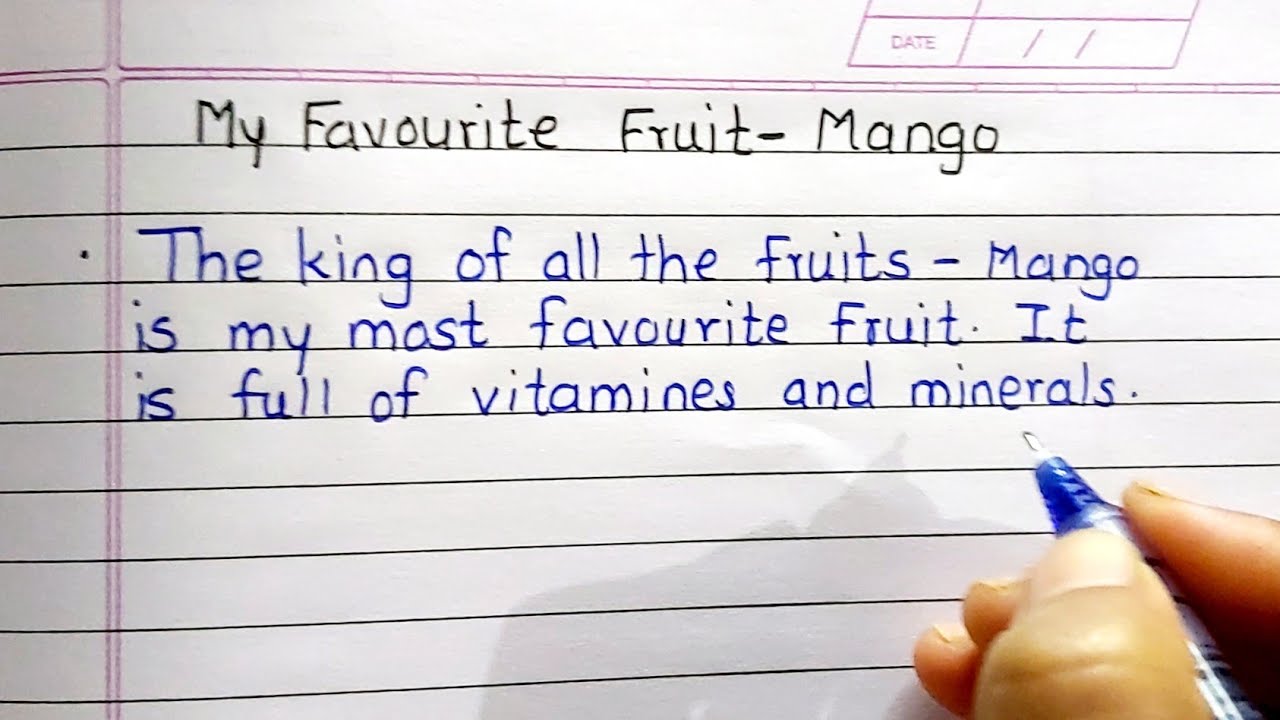 DATE / /
My Favourite Fruit- Mango
. The king of all the fruits - Mango
is my most favourite fruit. It
is full of vitamines and minerals.